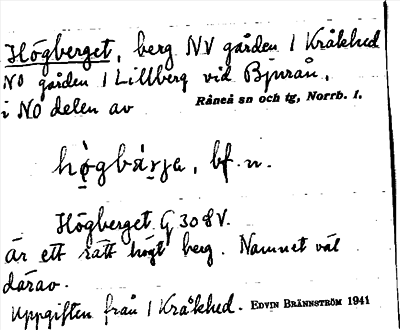 Högberget, berg NV gården 1 Kråkhed
NO gården 1 Lillberg vid Bjurån,
i NO delen av Råneå sn och tg, Norrb. l.
hö̀gbár̥ja, bf. n.
Högberget G 30 8 V.
Är ett rätt högt berg. Namnet väl
därav.
Uppgiften från 1 Kråkhed. EDVIN BRÄNNSTRÖM 1941